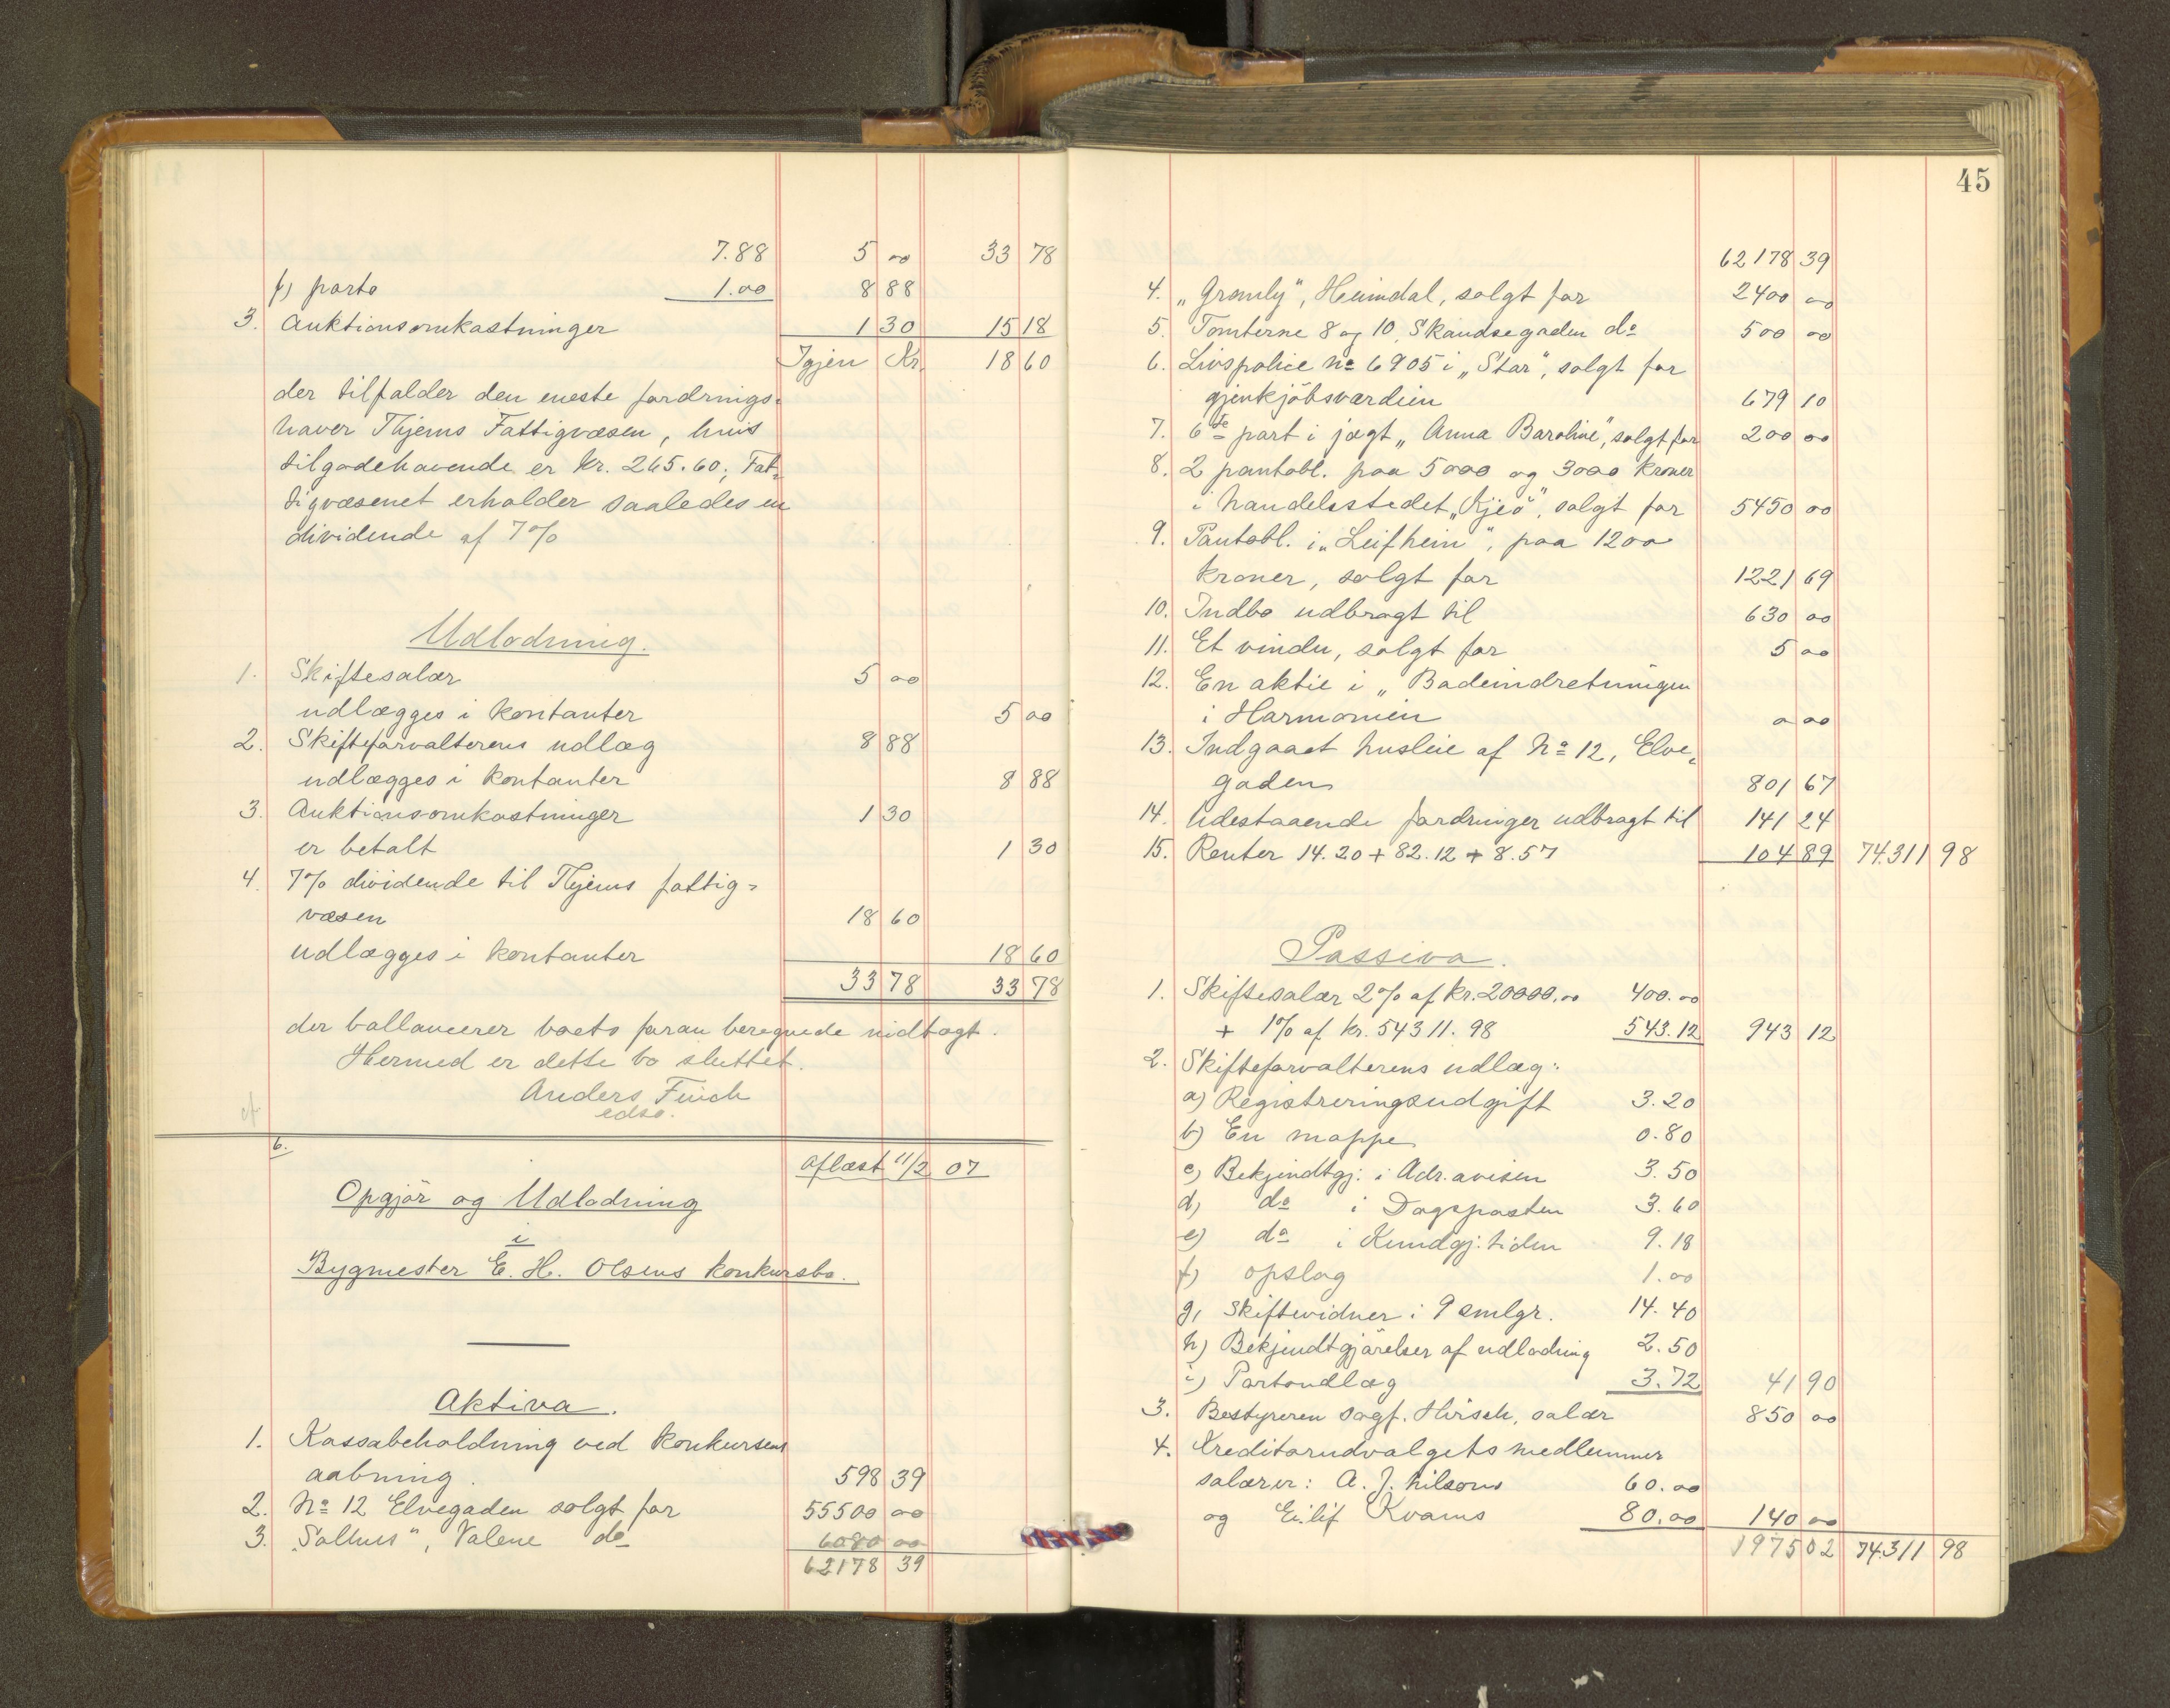 7.88 5 00 33 78
f) porto 1.00 8 88
3. Auktionsomkostninger 1 30 15 18
Igjen Kr. 18 60
der tilfalder den eneste fordrings-
haver Thjems Fattigvæsen, hvis
tilgodehavende er kr. 265.60; Fat-
tigvæsenet erholder saaledes en
dividende af 7%
Udlodning.
1. Skiftesalær 5 00
udlægges i kontanter 5 00
2. Skifteforvalterens udlæg 8 88
udlægges i kontanter 8 88
3. Auktionsomkostninger 1 30
er betalt 1 30
4. 7% dividende til Thjems fattig-
væsen 18 60
udlægges i kontanter 18 60
33 78 33 78
der ballancerer boets foran beregnede indtægt.
Hermed er dette bo sluttet.
Anders Finch
edsv.
6.
aflæst 11/2 07
Opgjör og Udlodning
i
Bygmester E. H. Olsens konkursbo.
Aktiva.
1. Kassabeholdning ved konkursens
aabning. 598 39
2. No 12 Elvegaden solgt for 55500 00
3. "Solhus", Valene do 6080 00
62178 39
45
62178 39
4. "Gramly", Heimdal, solgt for 2400 00
5. Tomterne 8 og 10, Skandsegaden do 500 00
6. Livspolice No 6905 i "Star", solgt for
gjenkjöbsværdien 679 10
7. 6te part i jægt "Anna Baroline", solgt for 200 00
8. 2 pantobl. paa 5000 og 3000 kroner
i handelsstedet "Kjeö", solgt for 5450 00
9. Pantobl. i "Leifheim", paa 1200
kroner, solgt for 1221 69
10. Indbo udbragt til 630 00
11. Et vindu, solgt for 5 00
12. En aktie i "Badeindretningen
i Harmonien 0 00
13. Indgaaet husleie af No 12, Elve-
gaden 801 67
14. Udestaaende fordringer udbragt til 141 24
15. Renter 14.20 + 82.12 + 8.57 104 89 74311 98
Passiva.
1. Skiftesalær 2% af kr. 20000.00 400.00
+ 1% af kr. 54311.98 543.12 943 12
2. Skifteforvalterens udlæg:
a) Registreringsudgift 3.20
b) En mappe 0.80
c) Bekjendtgj: i Adr.avisen 3.50
d) do i Dagsposten 3.60
e) do i Kundgj.tiden 9.18
f) opslag 1.00
g) skiftevidner i 9 smlgr. 14.40
h) Bekjendtgjörelser af udlodning 2.50
i) Portoudlæg 3.72 41 90
3. Bestyreren sagf. Hirsch, salær 850 00
4. Kreditorudvalgets medlemmer
salærer: A. J. Nilsons 60.00
og Eilif Kvams 80.00 140 00
1975 02 74311 98